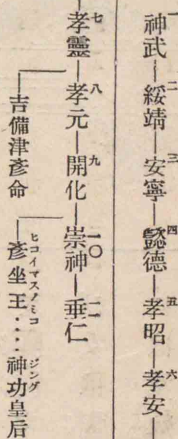 一神武―二綏靖―三安寧―四懿德―五孝昭―六孝安―
―七孝靈―八孝元―九開化―一〇崇神―一一垂仁
吉備津彥命
彥坐王‥‥神功皇后
ヒコイマスノミコ ジング